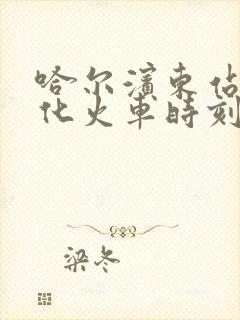 哈尔滨东站
化火车时刻
梁冬